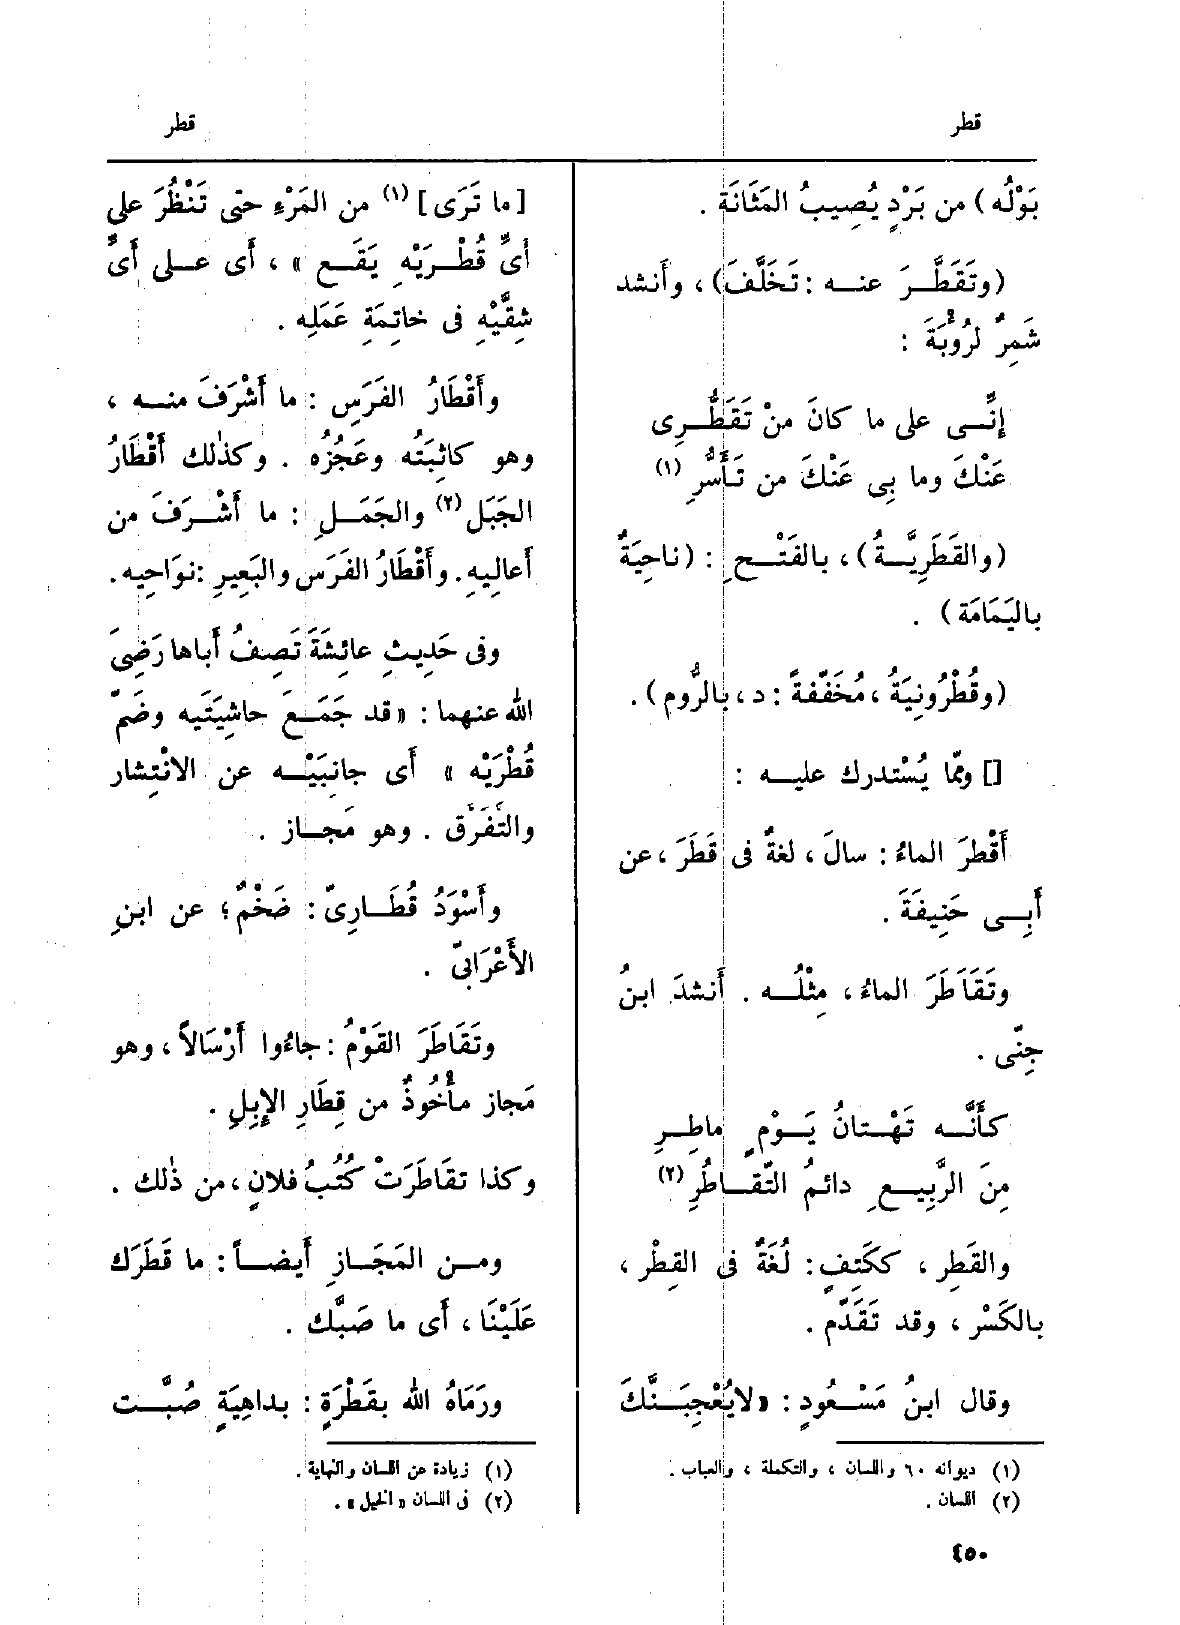 قطر
قطر
بَوْلُه) من بَرْدٍ يُصِيبُ المَثَانَة .
(وتَقَطَّرَ عنه : تَخَلَّفَ) ، وأَنشد
شَمِرٌ لرُؤْبَةَ :
إِنِّى على ما كانَ منْ تَقَطُّرِى
عَنْكَ وما بِى عَنْكَ من تَأَسُّرِ (١)
(والقَطَرِيَّةُ) ، بالفَتْحِ : (ناحِيَةٌ
باليَمَامَة) .
(وقُطْرُونِيَةُ ، مُخَفَّفةً : د ، بالرُّوم) .
[] وممّا يُسْتدرك عليه :
أَقْطرَ الماءُ : سالَ ، لغةٌ فى قَطَرَ ، عن
أَبِى حَنِيفَةَ .
وتَقَاطَرَ الماءُ ، مِثْلُه . أَنشدَ ابنُ
جِنِّى .
كأَنَّه تَهْتانُ يَوْمٍ ماطِرِ
مِنَ الرَّبِيعِ دائمُ التَّقاطُرِ (٢)
والقَطِر ، ككَتِفٍ : لُغَةٌ فى القِطْر ،
بالكَسْر ، وقد تَقَدَّم .
وقال ابنُ مَسْعُودٍ : «لايُعْجِبَنَّكَ
(١) ديوانه ٦٠ واللسان ، والتكملة ، والعباب .
(٢) اللسان .
[ما تَرَى] (١) من المَرْءِ حتى تَنْظُرَ على
أَىِّ قُطْرَيْهِ يَقَع » ، أَى على أَىِّ
شِقَّيْهِ فى خاتِمَةِ عَمَلِه .
وأَقْطَارُ الفَرَسِ : ما أَشْرَفَ منه ،
وهو كاثِبَتُه وعَجُزُه . وكذٰلك أَقْطَارُ
الجَبَل (٢) والجَمَلِ : ما أَشْرَفَ من
أَعالِيهِ. وأَقْطَارُ الفَرَس والبَعِيرِ :نوَاحِيه.
وفى حَدِيثِ عائِشَةَ تَصِفُ أَباها رَضِىَ
الله عنهما : «قد جَمَعَ حاشِيَتَيه وضَمَّ
قُطْرَيْه » أَى جانِبَيْه عن الانْتِشار
والتَّفَرُّق . وهو مَجاز .
وأَسْوَدُ قُطَارِىّ : ضَخْمٌ ؛ عن ابنِ
الأَعْرَابىّ .
وتَقَاطَرَ القَوْمُ : جاءُوا أَرْسَالاً ، وهو
مَجاز مأْخُوذٌ من قِطَارِ الإِبِلِ .
وكذا تقَاطَرَتْ كُتُبُ فلانٍ ، من ذٰلك .
ومن المَجَازِ أَيضاً : ما قَطَرَك
عَلَيْنَا ، أَى ما صَبَّك .
ورَمَاهُ الله بقَطْرَةٍ : بداهِيَةٍ صُبَّت
(١) زيادة من اللسان والنهاية .
(٢) فى اللسان « الخيل» .
٤٥٠